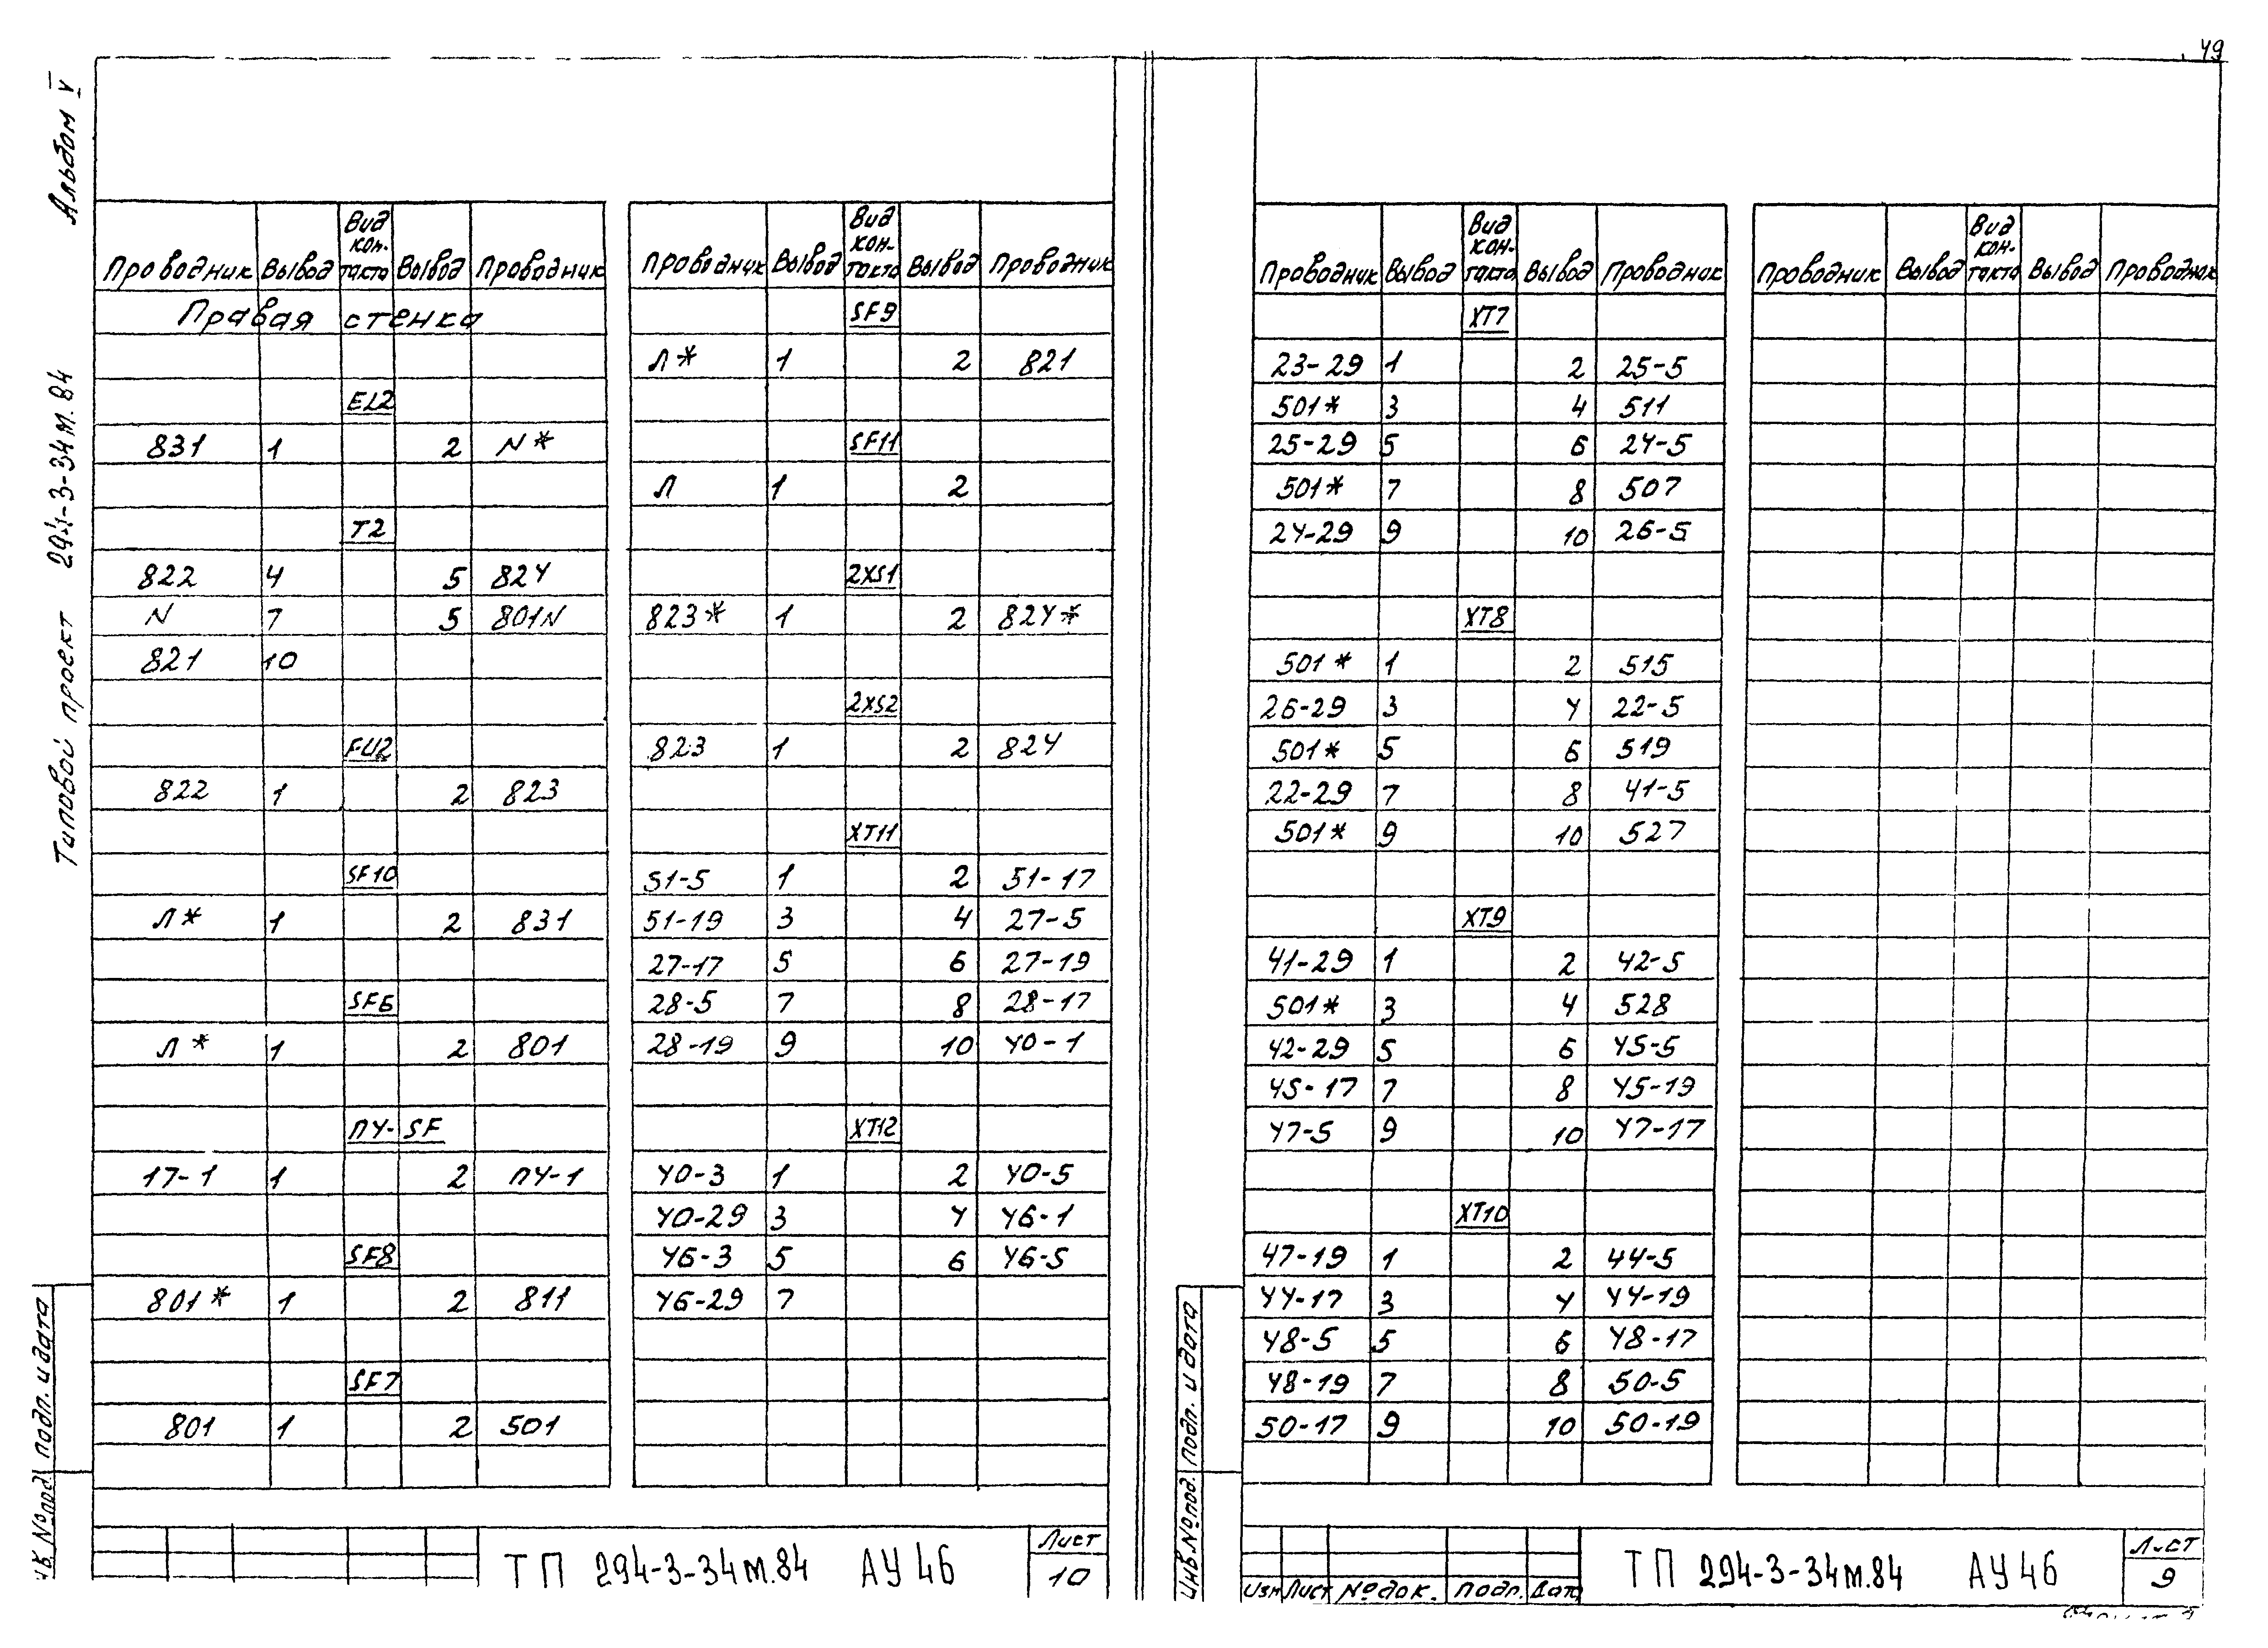 49
Альбом V
Типовой проект 294-3-34м.84
Проводник Вывод Вид кон-такта Вывод Проводник
Правая стенка
EL2
831 1 2 N*
T2
822 4 5 824
N 7 5 801N
821 10
FU2
822 1 2 823
SF10
Л* 1 2 831
SF6
Л* 1 2 801
ПУ-SF
17-1 1 2 ПУ-1
SF8
801* 1 2 811
SF7
801 1 2 501
Проводник Вывод Вид кон-такта Вывод Проводник
SF9
Л* 1 2 821
SF11
Л 1 2
2XS1
823* 1 2 824*
2XS2
823 1 2 824
XT11
51-5 1 2 51-17
51-19 3 4 27-5
27-17 5 6 27-19
28-5 7 8 28-17
28-19 9 10 40-1
XT12
40-3 1 2 40-5
40-29 3 4 46-1
46-3 5 6 46-5
46-29 7
подп. и дата
ТП 294-3-34м.84 АУ46
Лист
10
Проводник Вывод Вид кон-такта Вывод Проводник
XT7
23-29 1 2 25-5
501* 3 4 511
25-29 5 6 24-5
501* 7 8 507
24-29 9 10 26-5
XT8
501* 1 2 515
26-29 3 4 22-5
501* 5 6 519
22-29 7 8 41-5
501* 9 10 527
XT9
41-29 1 2 42-5
501* 3 4 528
42-29 5 6 45-5
45-17 7 8 45-19
47-5 9 10 47-17
XT10
47-19 1 2 44-5
44-17 3 4 44-19
48-5 5 6 48-17
48-19 7 8 50-5
50-17 9 10 50-19
Проводник Вывод Вид кон-такта Вывод Проводник
Инв.№под. подп. и дата
Изм Лист № док. подп. Дата
ТП 294-3-34м.84 АУ46
Лист
9